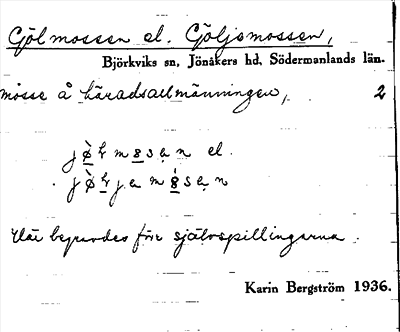 Gölmossen el. Göljemossen,
Björkviks sn, Jönåkers hd, Södermanlands län.
mosse å häradsallmänningen, 2
el.
Här begravdes förr självspillingarna.
Karin Bergström 1936.